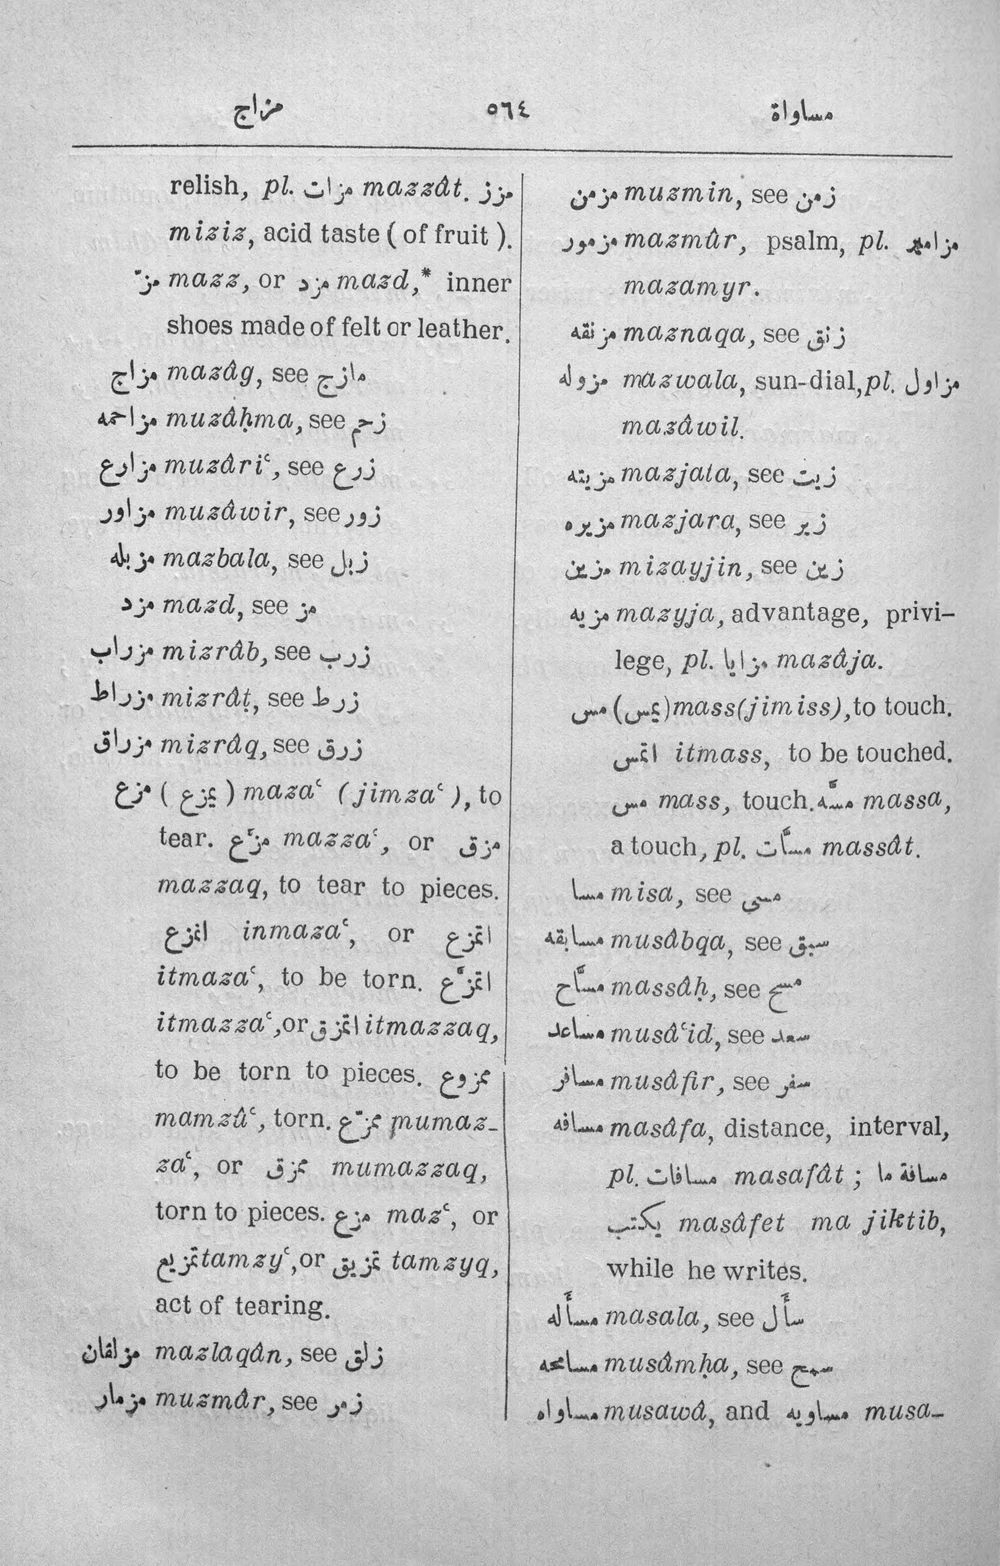 مزاج ٥٦٤ مساواة
relish, pl. مزات mazzât. مزز
miziz, acid taste ( of fruit ).
مزّ mazz, or مزد mazd,* inner
shoes made of felt or leather.
مزاج mazâg, see مازج
مزاحمه muzâḥma, see زحم
مزارع muzâriʿ, see زرع
مزاور muzâwir, see زور
مزبله mazbala, see زبل
مزد mazd, see مز
مزراب mizrâb, see زرب
مزراط mizrâṭ, see زرط
مزراق mizrâq, see زرق
مزع ( يمزع ) mazaʿ (jimzaʿ), to
tear. مزّع mazzaʿ, or مزق
mazzaq, to tear to pieces.
انمزع inmazaʿ, or اتمزع
itmazaʿ, to be torn. اتمزّع
itmazzaʿ, or اتمزق itmazzaq,
to be torn to pieces. ممزوع
mamzûʿ, torn. ممزّع mumaz-
zaʿ, or ممزق mumazzaq,
torn to pieces. مزع mazʿ, or
تمزيع tamzyʿ, or تمزيق tamzyq,
act of tearing.
مزلقان mazlaqân, see زلق
مزمار muzmâr, see زمر
مزمن muzmin, see زمن
مزمور mazmûr, psalm, pl. مزامير
mazamyr.
مزنقه maznaqa, see زنق
مزوله mazwala, sun-dial, pl. مزاول
mazâwil.
مزيته mazjata, see زيت
مزيره mazjara, see زير
مزين mizayjin, see زين
مزيه mazyja, advantage, privi-
lege, pl. مزايا mazâja.
مس (يمس) mass (jimiss), to touch.
اتمس itmass, to be touched.
مس mass, touch. مسّه massa,
a touch, pl. مسّات massât.
مسا misa, see مسى
مسابقه musâbqa, see سبق
مسّاح massâḥ, see مسح
مساعد musâʿid, see سعد
مسافر musâfir, see سفر
مسافه masâfa, distance, interval,
pl. مسافات masafât ; مسافة ما
يكتب masâfet ma jiktib,
while he writes.
مسأله masala, see سأل
مسامحه musâmḥa, see سمح
مساواه musawâ, and مساويه musa-